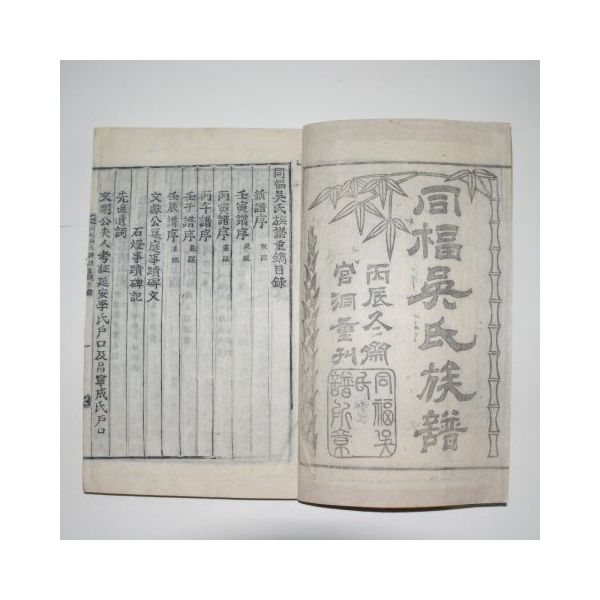 同福吳氏族譜
丙辰冬齋
官洞重刊
同福吳
氏
譜所章
同福吳氏族譜重鐫目錄
新譜序
壬寅譜序
丙寅譜序
丙午譜序
壬子譜序
壬辰譜序
文獻公墓庭事蹟碑文
石燈事蹟碑記
先世遺詞
文明公夫人考証延安李氏戶口及昌寧成氏戶口